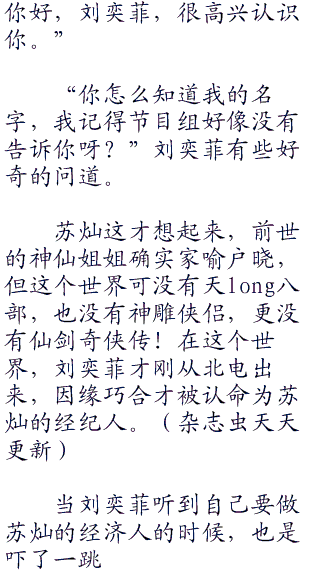 你好，刘奕菲，很高兴认识
你。”
“你怎么知道我的名
字，我记得节目组好像没有
告诉你呀？”刘奕菲有些好
奇的问道。
苏灿这才想起来，前世
的神仙姐姐确实家喻户晓，
但这个世界可没有天long八
部，也没有神雕侠侣，更没
有仙剑奇侠传！在这个世
界，刘奕菲才刚从北电出
来，因缘巧合才被认命为苏
灿的经纪人。（杂志虫天天
更新）
当刘奕菲听到自己要做
苏灿的经济人的时候，也是
吓了一跳